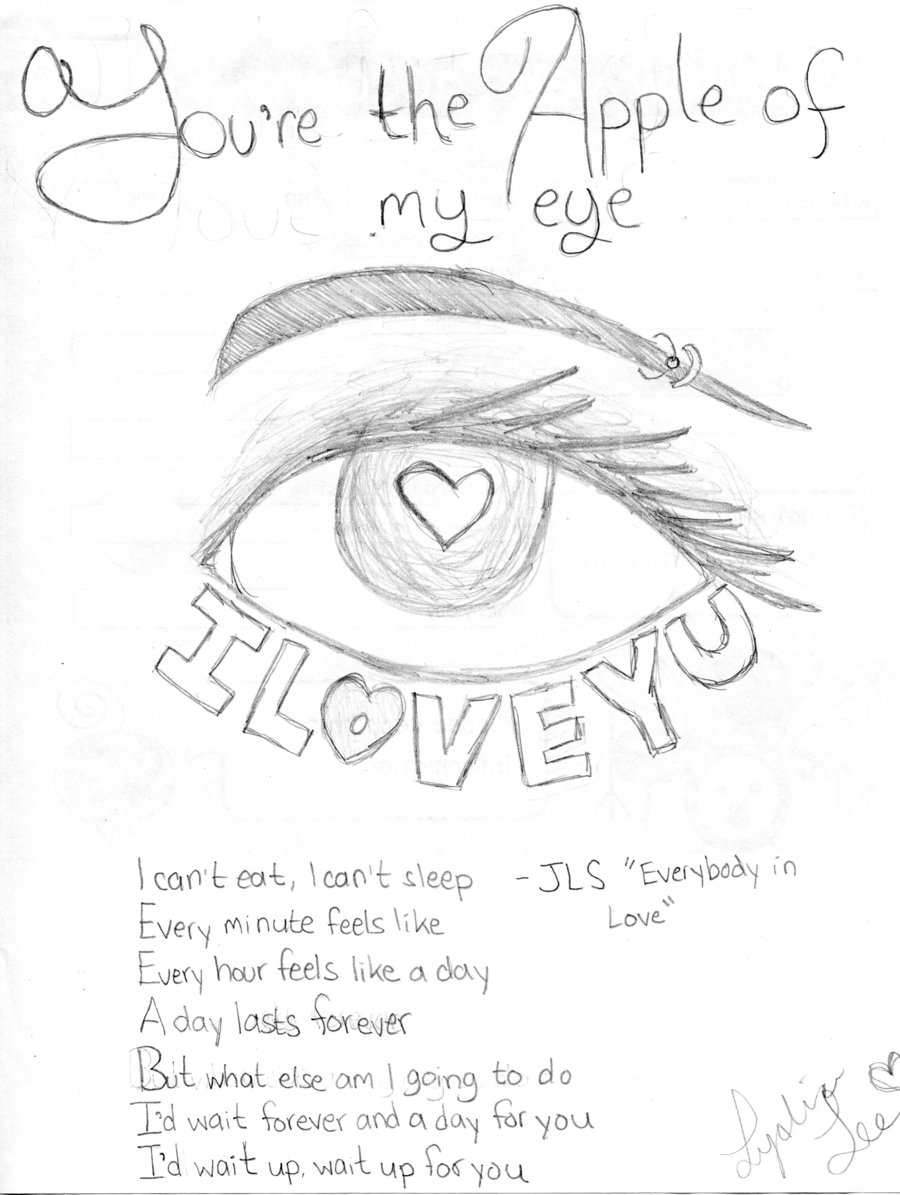 You're the Apple of
my eye
I LOVE YU
I can't eat, I can't sleep - JLS "Everybody in
Love"
Every minute feels like
Every hour feels like a day
A day lasts forever
But what else am I going to do
I'd wait forever and a day for you
I'd wait up, wait up for you
Lydia
Lee